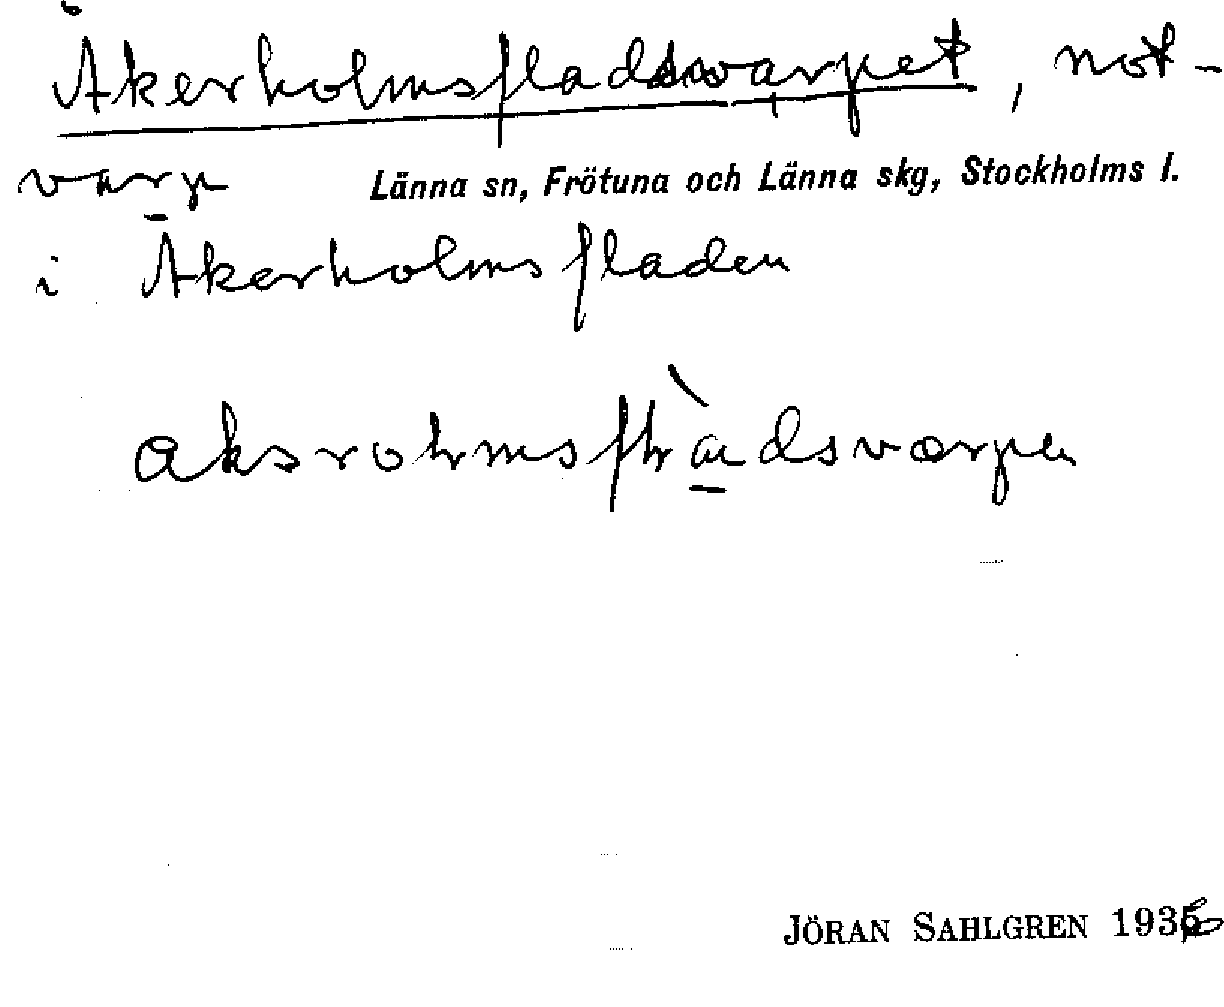 Åkerholmsfladsvarpet, not-
varp Länna sn, Frötuna och Länna skg, Stockholms l.
i Åkerholmsfladen
JÖRAN SAHLGREN 1936